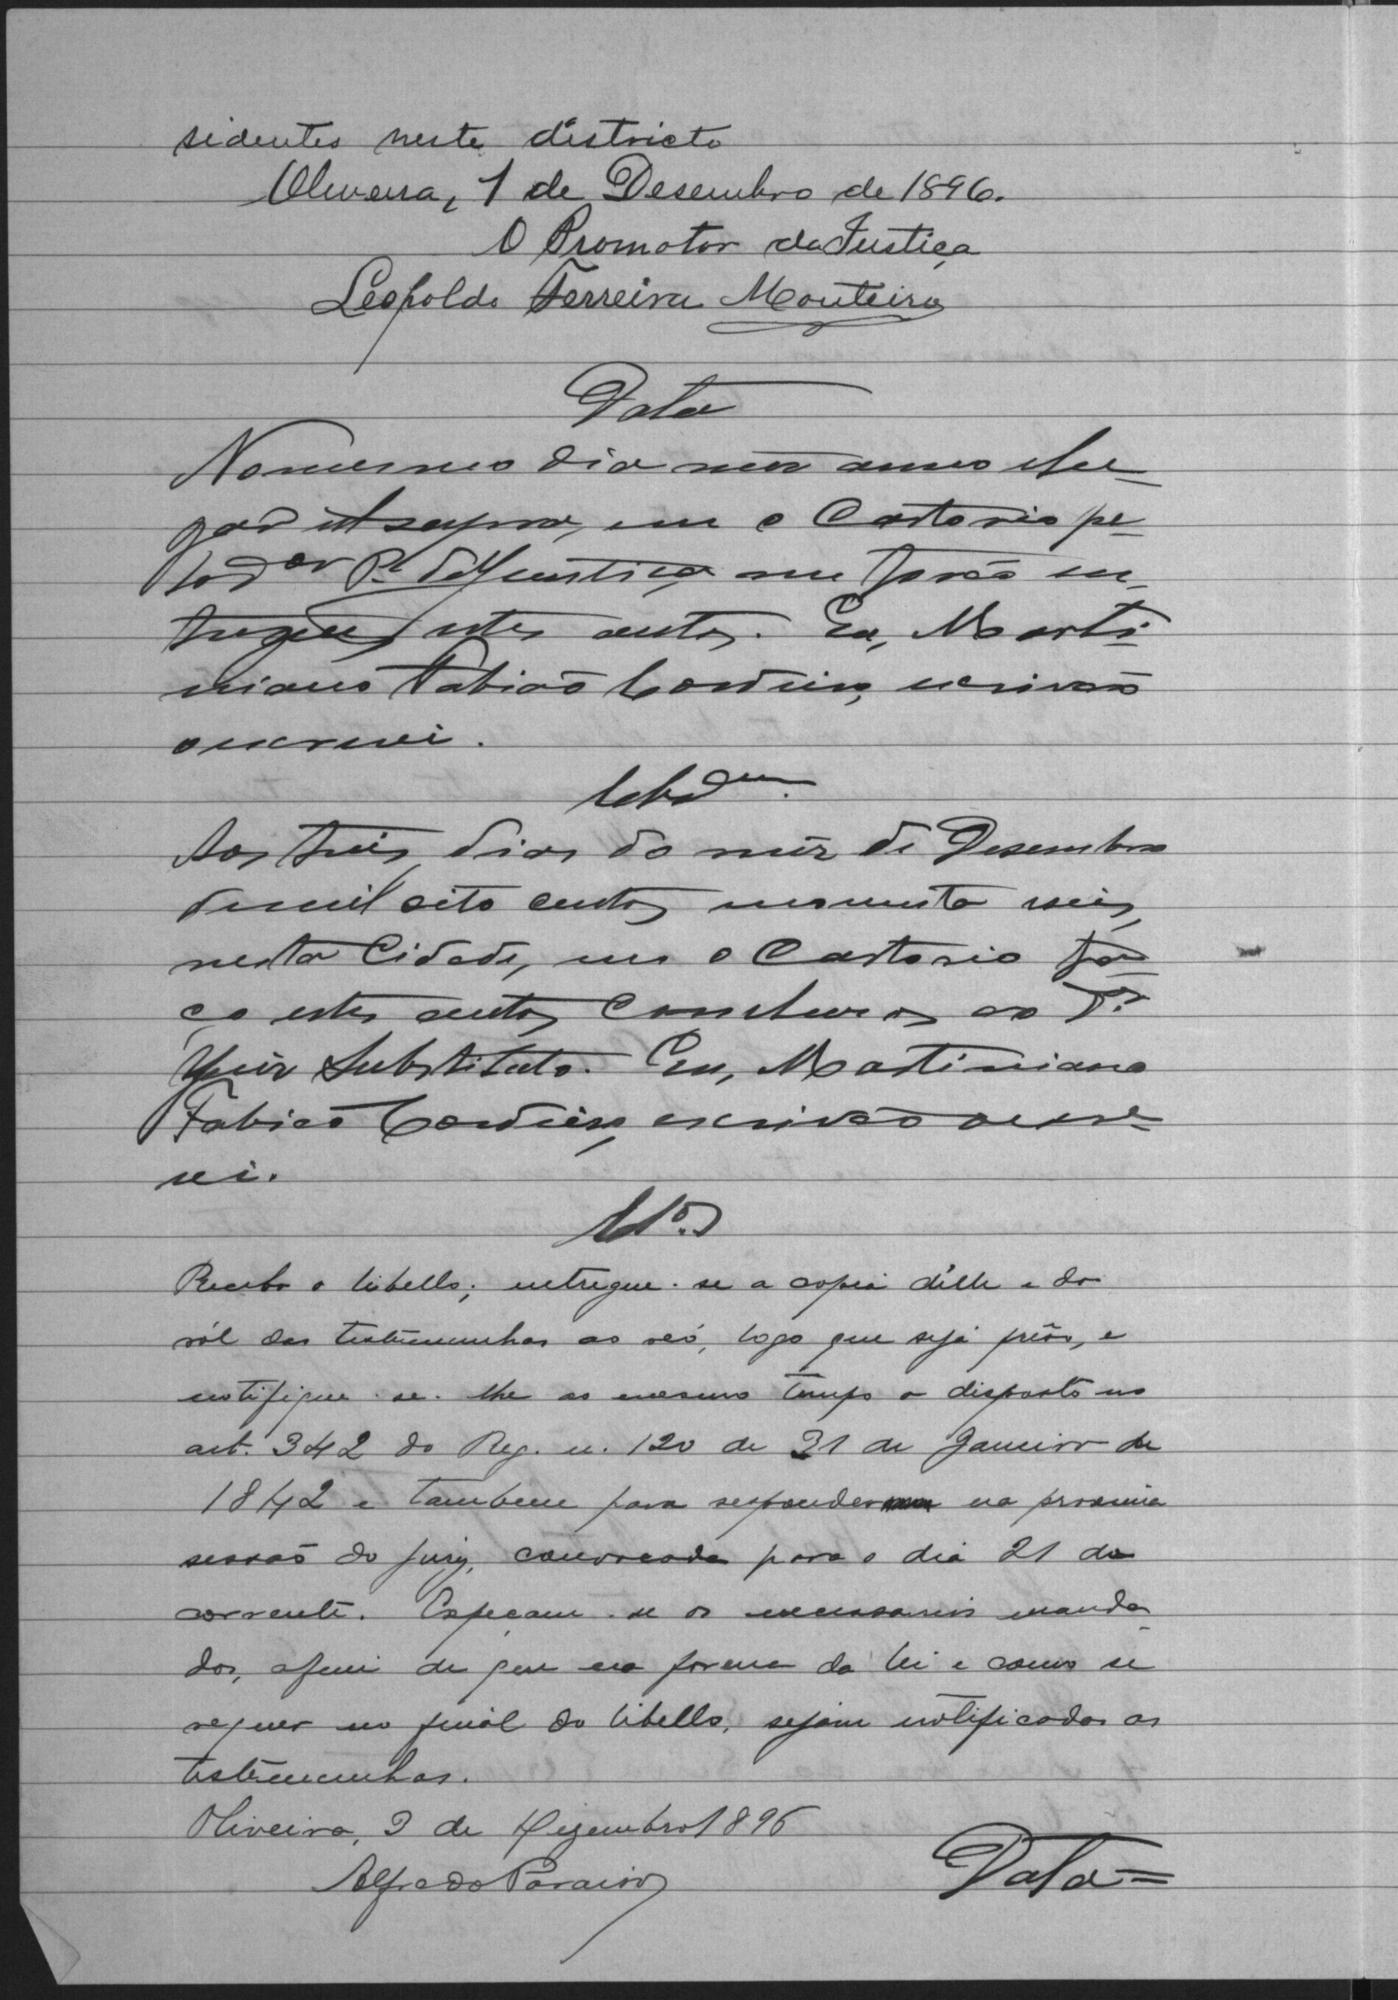 sidentes neste districto
Oliveira, 1 de Desembro de 1896.
O Promotor da Justiça
Leopoldo Ferreira Monteiro
Data
No mesmo dia mez anno e lu-
gar ut supra, em o Cartorio pe-
lo Dor Pr. da Justiça me forão en-
tregues estes autos. Eu, Marti-
niano Fabião Cordeiro, escrivão
o escrevi.
Aos treis dias do mêz de Desembro
de mil oito centos noventa e seis,
nesta Cidade, em o Cartorio fa-
ço estes autos Conclusos ao Dr.
Juiz Substituto. Eu, Martiniano
Fabião Cordeiro, escrivão o escre-
vi.
Recebo o libello; entregue-se a copia d'elle e do
ról das testemunhas ao reó, logo que seja prêso, e
notifique-se-lhe ao mesmo tempo o disposto no
art. 342 do Reg. n. 120 de 31 de Janeiro de
1842 e tambem para responder na proxima
sessão do jury, convocada para o dia 21 do
corrente. Expeçam-se os necessarios manda-
dos, afim de que na forma da lei e como se
requer no finál do libello, sejam notificadas as
testemunhas.
Oliveira, 3 de Dezembro 1896
Alfredo Paraiso
Data=